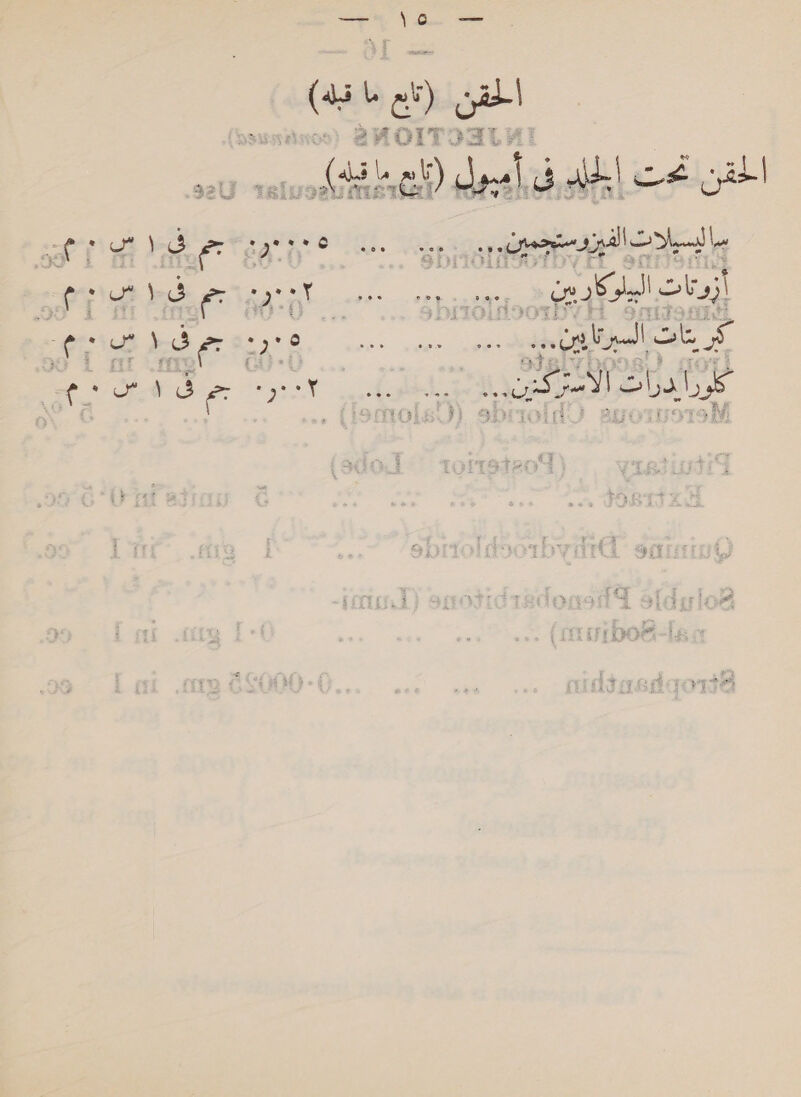 — ١٥ —
الحقن (تابع ما قبله)
الحقن تحت الجلد فى أمبول (تابع ما قبله)
ساليسيلات الفيزوستجمين ... ... ... ٠ر٠٠٠٥ جم فى ١ س ٠ م
أزوتات البيلوكاربين ... ... ... ٠ر٠٠٢ جم فى ١ س ٠ م
كبريتات السبرتايين ... ... ... ... ٠ر٠٥ جم فى ١ س ٠ م
كلورايدرات الاستركنين ... ... ... ٠ر٠٠٢ جم فى ١ س ٠ م